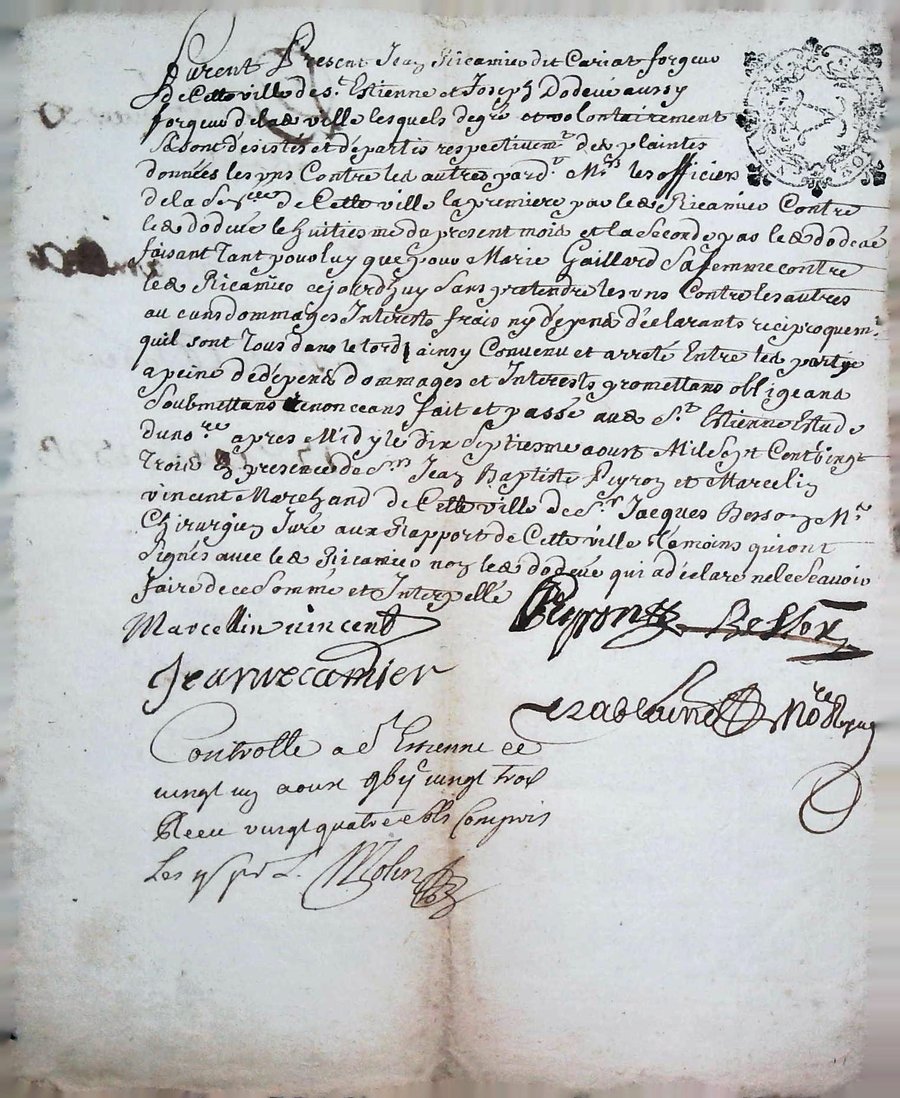 furent Present Jean Ricamier dit Cariat forgeur
de Cette ville de St Estienne et Joseph Dodevé aussy
forgeur de lad ville lesquels de gré et volontairement
Se sont desistés et départis respectivemt des plaintes
données les uns Contre les autres pard. Mrs les officiers
de la Sen de Cette ville la premiere par led Ricamier Contre
led dodevé le huitiesme du present mois et la Seconde par led dodevé
faisant tant pour luy que pour Marie Gaillard Sa femme contre
led Ricamier cejourdhuy Sans pretendre les uns Contre les autres
aucuns dommages Interests frais ny dépens déclarants reciproquemt
quil sont tous dans le tord ainsy Convenu et arreté Entre les partye
a peine de dépens dommages et Interests promettans obligeans
Soubmettans Renonceans fait et passé aud St Estienne Estude
du nore apres Midy le Dix Septiesme aoust Mil Sept Cent vingt
trois En presence de Srs Jean Baptiste Peyron et Marcelin
vincent Marchand de Cette ville de Sr Jacques Besson Mre
Chirurgien Juré aux Rapport de Cette ville témoins qui ont
Signés avec led Ricamier non led dodevé qui a déclaré ne le Scavoir
faire de ce Sommé et Interpellé
Marcellin vincent Peyron Besson
Jean recamier
Nore Royal
Controllé a St Estienne ce
vingt un aoust vingt trois
Receu vingt quatre sols Compris
Les Molin